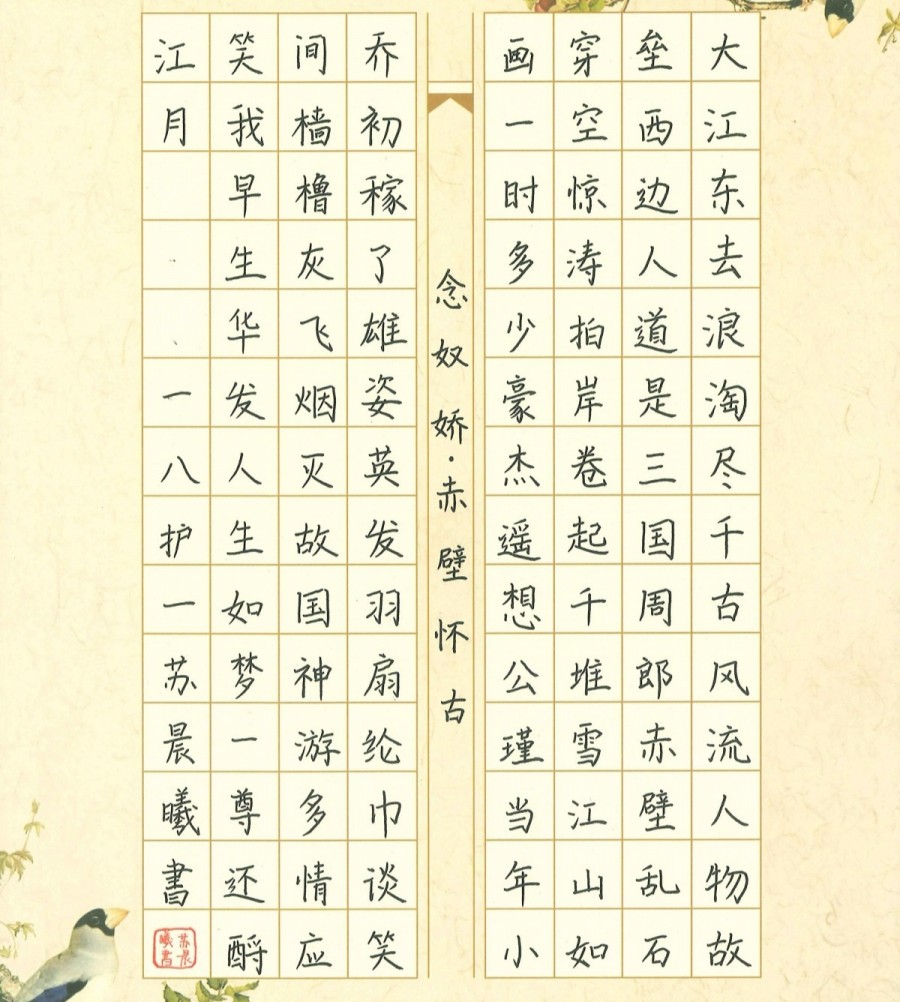 大江东去浪淘尽千古风流人物故
垒西边人道是三国周郎赤壁乱石
穿空惊涛拍岸卷起千堆雪江山如
画一时多少豪杰遥想公瑾当年小
念奴娇·赤壁怀古
乔初稼了雄姿英发羽扇纶巾谈笑
间樯橹灰飞烟灭故国神游多情应
笑我早生华发人生如梦一尊还酹
江月 一八护一苏晨曦書
苏晨
曦書